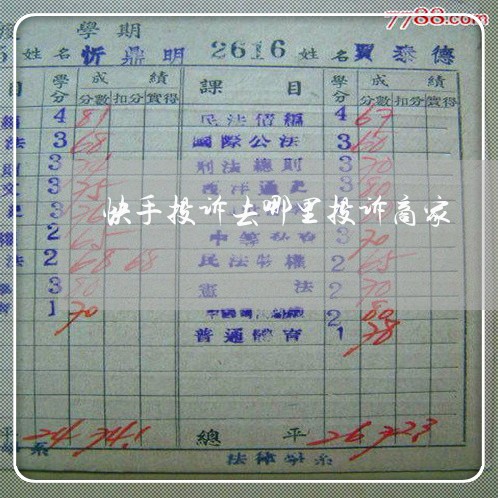 7788.com
學期
姓名 忻鼎明 2616 姓名 賈泰德
目 學分 成績 課目 學分 成績
分數 扣分 實得 分數 扣分 實得
4 81 民法債編 4 67
法 3 68 國際公法 3 60
3 刑法總則 3 70
3 75 西洋通史 3 80
快手投诉去哪里投诉商家
2 65 3 70
法 2 68 68 民法物權 2 65
3 80 憲法 2 70
1 70 2 80
普通體育 1 78
平 24 74.1 總平 26 72.3
系 法律學系